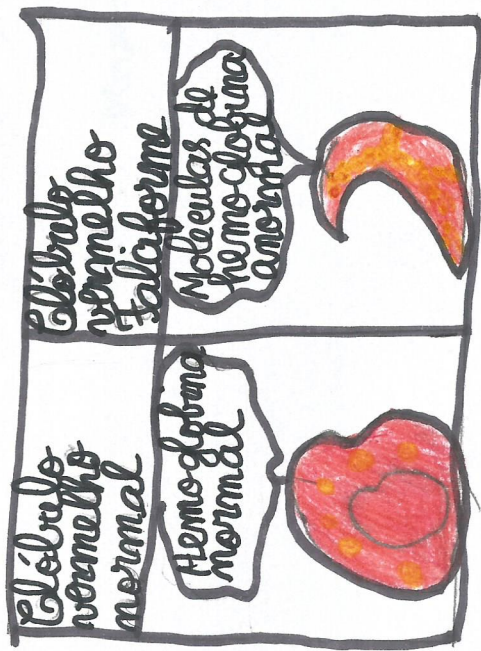 Glóbulo
vermelho
normal
Hemoglobina
normal
Glóbulo
vermelho
Falciforme
Moleculas de
hemoglobina
anormal